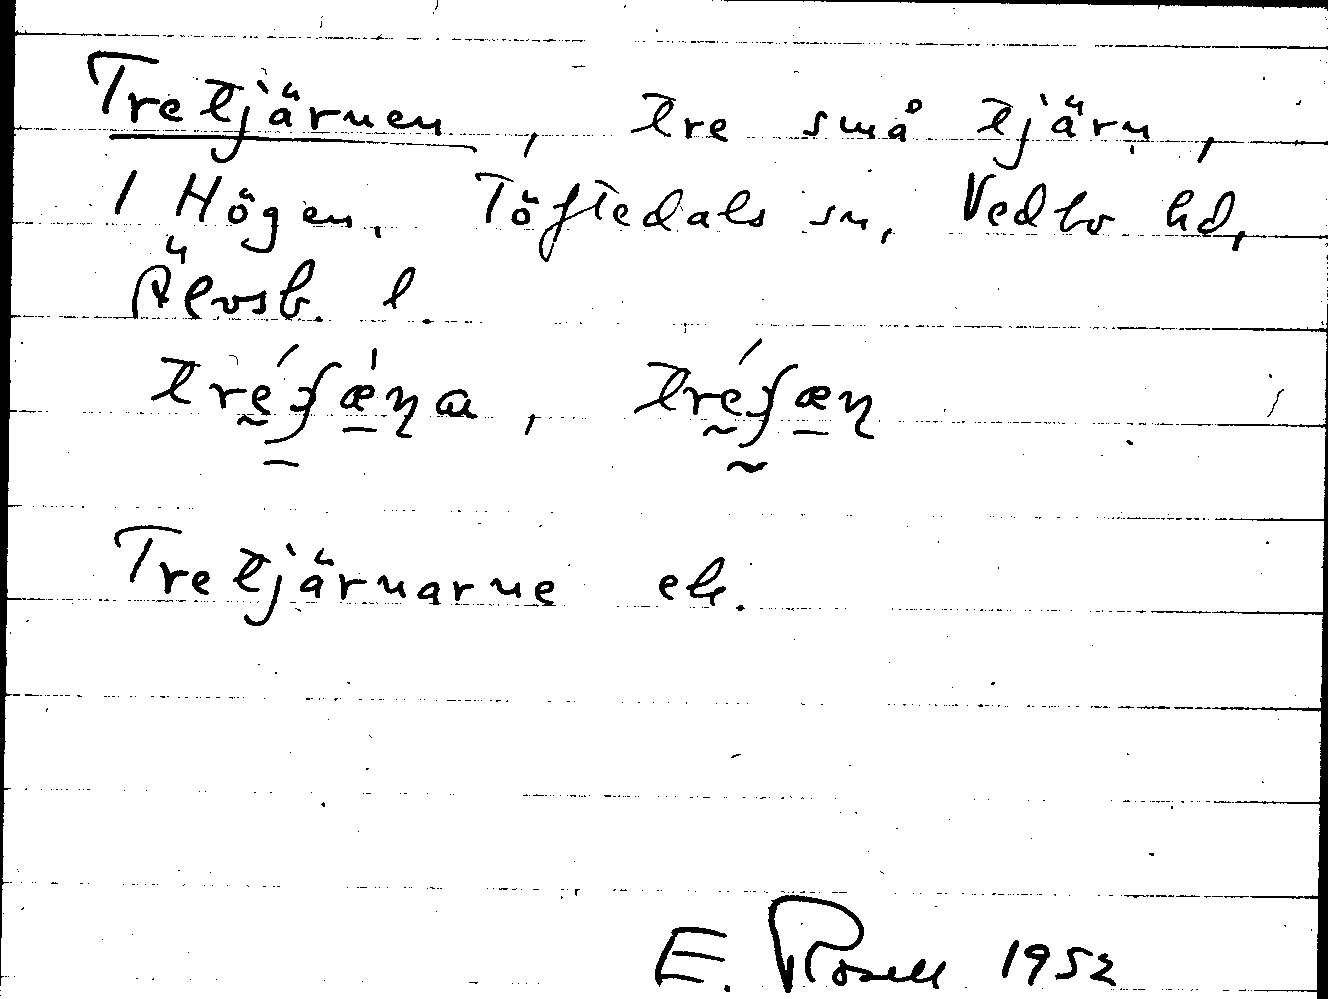 Tretjärnen, tre små tjärn,
1 Högen, Töftedals sn, Vedbo hd,
Älvsb. l.
trḛ́ʃǽɳa, trḛ́ʃæɳ
Tretjärnarne ek.
E. Rosell 1952